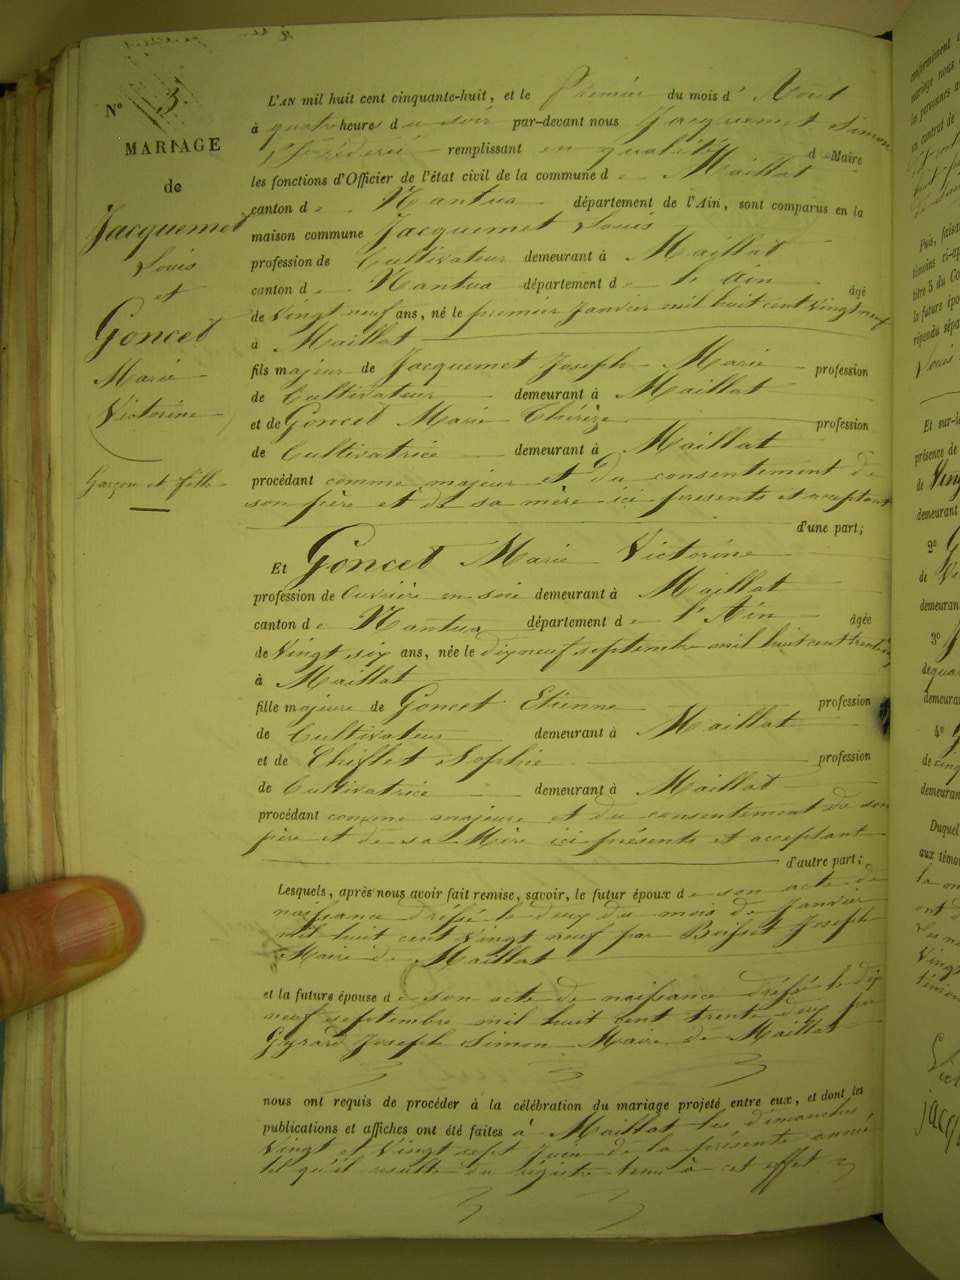 N° 3.
MARIAGE
de
Jacquemet
Louis
et
Goncet
Marie
Victorine
Garçon et fille
L'AN mil huit cent cinquante-huit, et le Premier du mois d' Aout
à quatre heures du soir par-devant nous Jacquemet Simon
Fréderic remplissant en qualité de Maire
les fonctions d'Officier de l'état civil de la commune de Maillat
canton de Nantua département de l'Ain, sont comparus en la
maison commune Jacquemet Louis
profession de Cultivateur demeurant à Maillat
canton de Nantua département de l'Ain âgé
de Vingt neuf ans, né le premier Janvier mil huit cent vingt neuf
à Maillat
fils majeur de Jacquemet Joseph Marie profession
de Cultivateur demeurant à Maillat
et de Goncet Marie Thérèze profession
de Cultivatrice demeurant à Maillat
procédant comme majeur et du consentement de
son père et de sa mère ici présents et acceptant
d'une part;
Et Goncet Marie Victorine
profession de Ouvrière en soie demeurant à Maillat
canton de Nantua département de l'Ain âgée
de Vingt six ans, née le dix neuf septembre mil huit cent trente
à Maillat
fille majeure de Goncet Etienne profession
de Cultivateur demeurant à Maillat
et de Chiflet Sophie profession
de Cultivatrice demeurant à Maillat
procédant comme majeure et du consentement de son
père et de sa Mère ici présents et acceptant
d'autre part;
Lesquels, après nous avoir fait remise, savoir, le futur époux de son acte de
naissance dréssé le deux du mois de Janvier
mil huit cent vingt neuf par Joseph
Maire de Maillat
et la future épouse de son acte de naissance dréssé le dix
neuf septembre mil huit cent trente deux par
Joseph Simon Maire de Maillat
nous ont requis de procéder à la célébration du mariage projeté entre eux, et dont les
publications et affiches ont été faites à Maillat les dimanches,
Vingt et Vingt sept Juin de la présente année
tel qu'il résulte du régistre tenu à cet effet